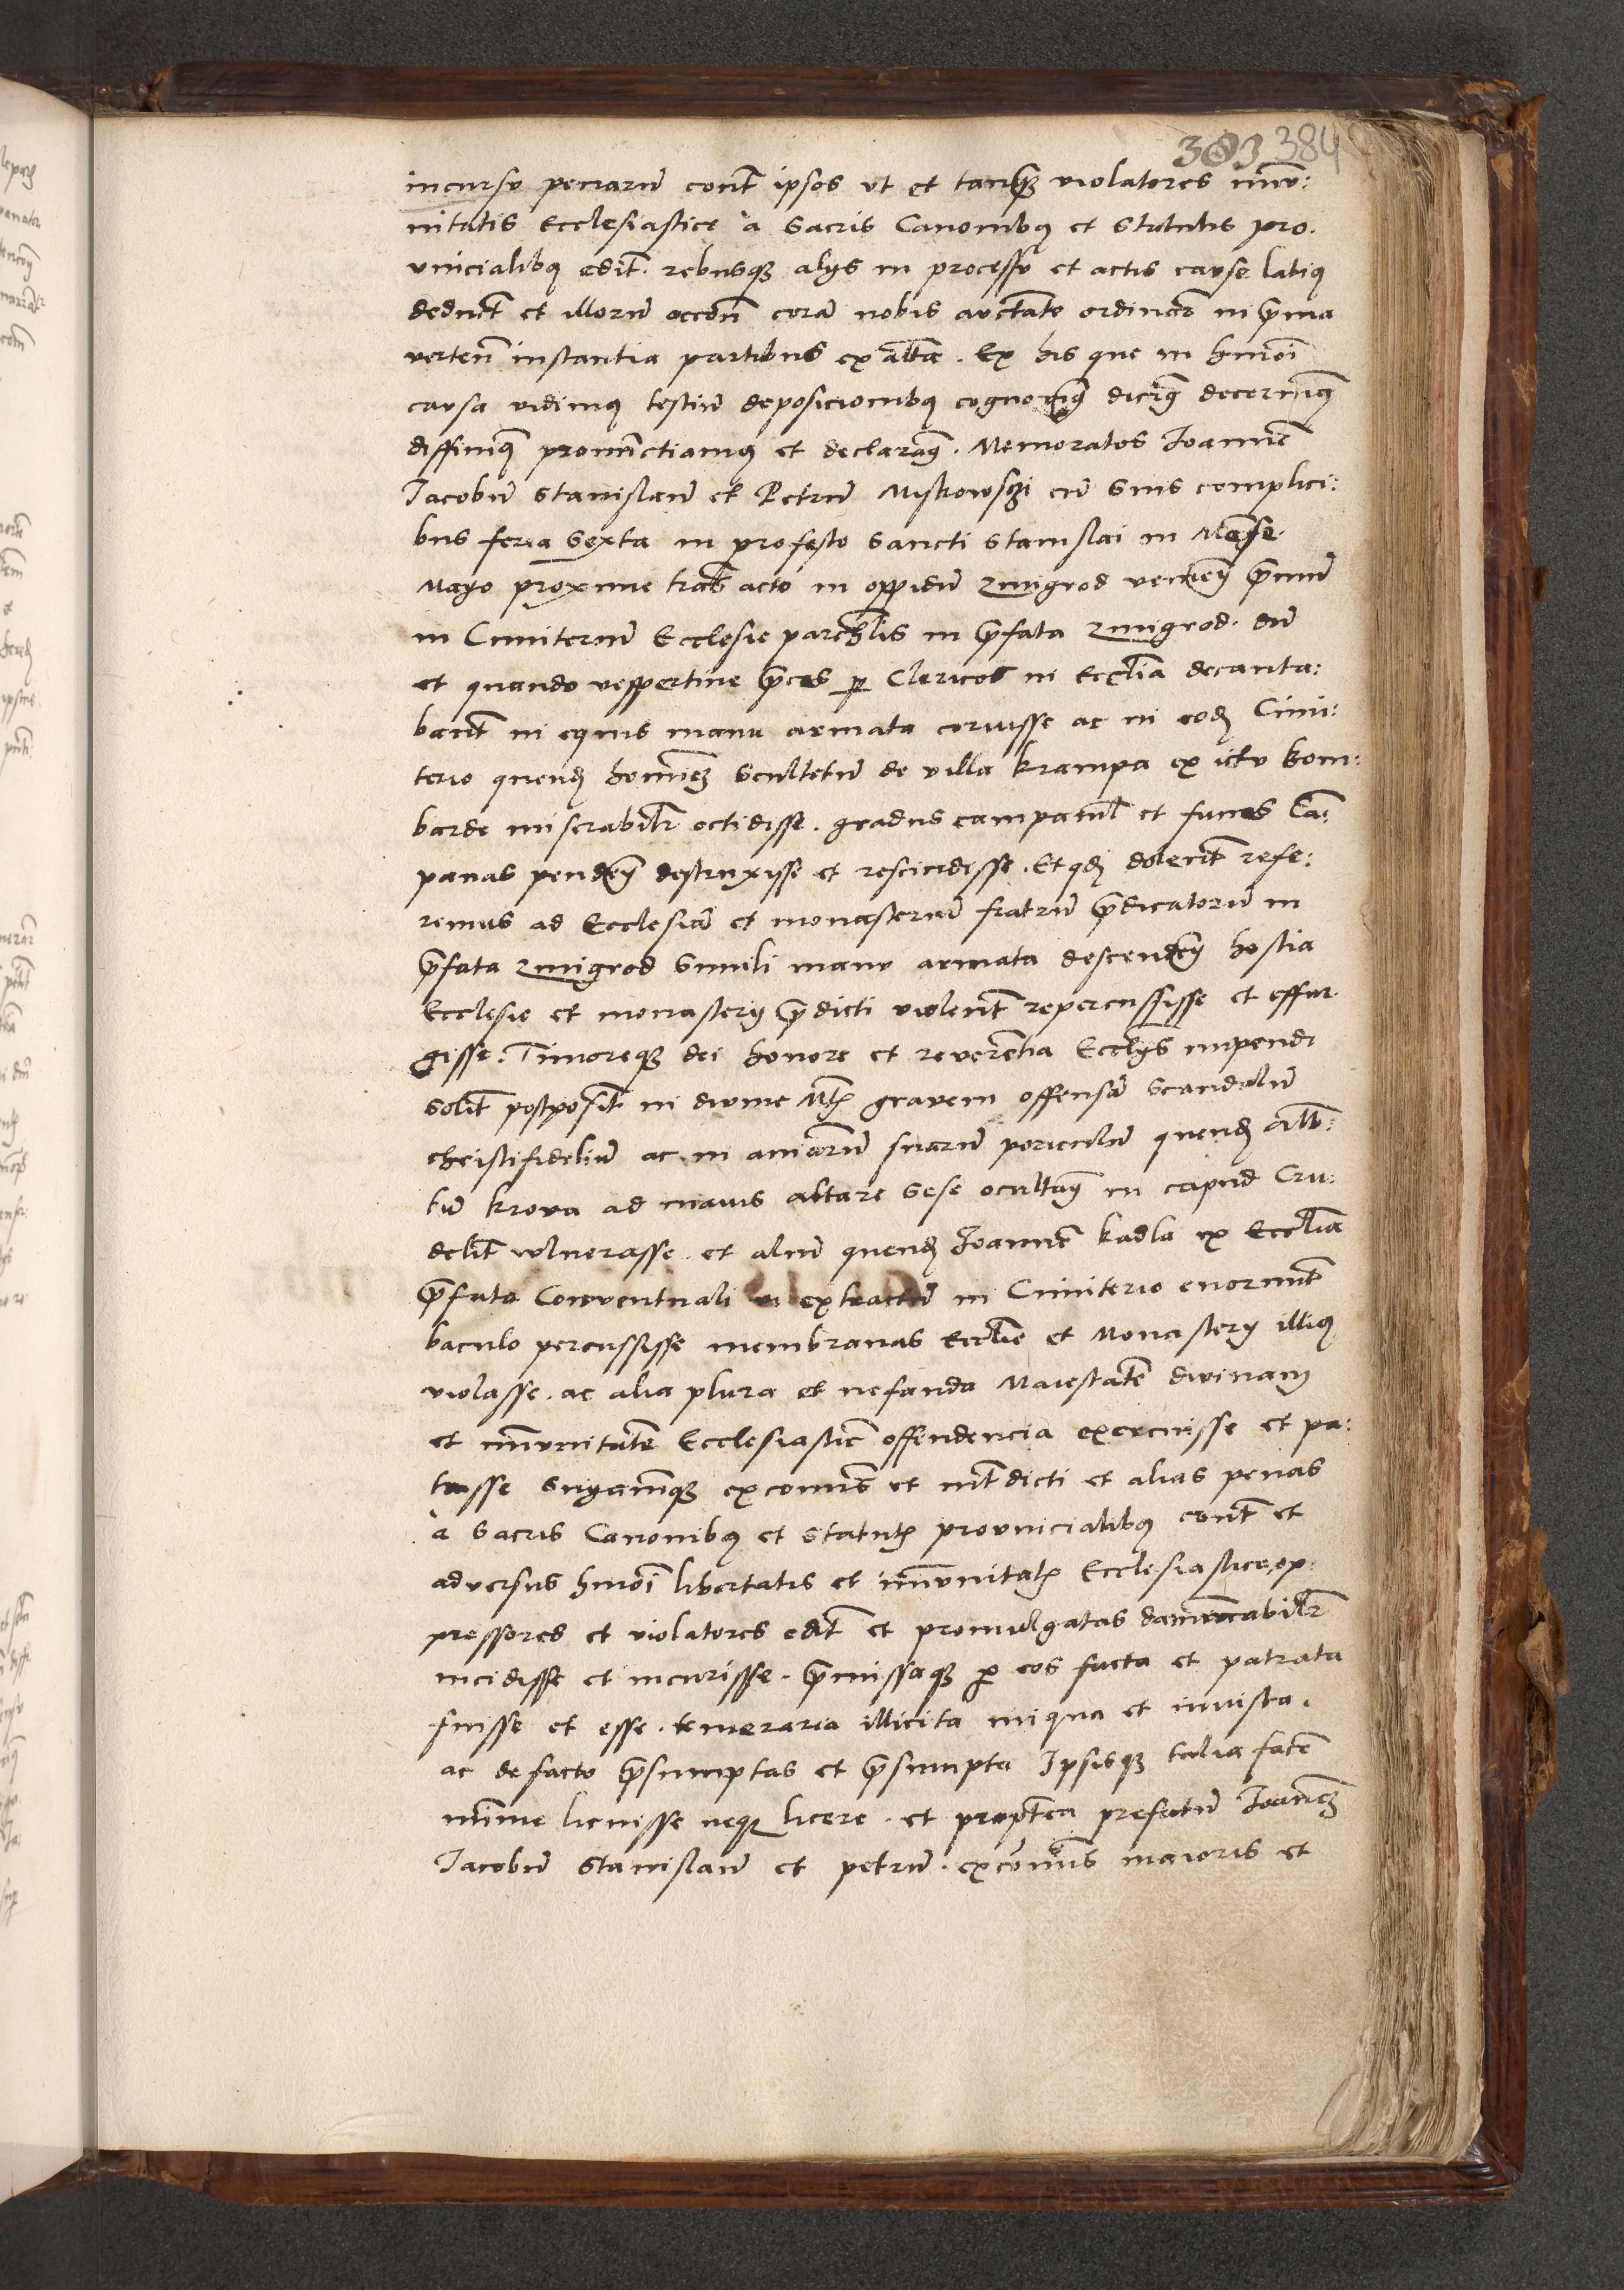 303 384
incursu penarum cont ipsos ut et tanq3 violatores immu:
nitatis Ecclesiastice à Sacris Canonibus et Statutis pro.
vincialibus edit. rebusq3 alys in processu et actis cause latius
deduct et illorum occon coram nobis auctate ordinar in prima
verten instantia partibus ex alta. Ex his que in hmoi
causa vidimus testium deposicionibus cognovimus dicimus decernimus
diffinimus pronunctiamus et declaramus. Memoratos Joannem
Jacobum Stanislaum et Petrum Miskowszi cum suis complici:
bus feria Sexta in profesto Sancti Stanislai in Mense
Mayo proxime trans acto in oppidum zmigrod venien primum
in Cimiterium Ecclesie parochlis in prefata zmigrod. dum
et quando vesppertine preces per Clericos in Ecclia decanta:
bant in equis manu armata corruisse ac in eod Cimi:
terio quend hominem Scultetum de villa Krampa ex ictu bom:
barde miserabilr occidisse. gradus campanil et funes Cam:
panas penden destruxisse et rescindisse. Et qd dolent refe:
rimus ad Ecclesiam et monasterium fratrum predicatorum in
prefata zmigrod Simili manu armata descenden hostia
Ecclesie et monastery predicti violent repercussisse et effur
gisse. Timoreq3 dei honore et reverentia Ecclys impendi
solit postposit in divine Mtis gravem offensam Scandalum
christifidelium ac in animarum suarum periculum quend Alb:
tum Krova ad maius altare Sese ocultan in capud Cru:
delit vulnerasse. et alium quend Joannem Kadla ex Ecclia
prefata Conventuali vi extractum in Cimiterio enormit
baculo percussisse membranas Ecclie et Monastery illius
violasse. ac alia plura et nefanda Maiestatem divinam
et immunitatem Ecclesiastic offendencia exercuisse et pa:
trasse excomis et intdicti et alias penas
à Sacris Canonibus et Statutis provincialibus cont et
adversus hmoi libertatis et immunitatis Ecclesiastice op
pressores et violatores edit et promulgatas damnabilr
incidisse et incurisse. premissaq3 per eos facta et patrata
fuisse et esse. temeraria illicita iniqua et iniusta.
ac de facto presumptas et presumpta Ipsisq3 talia facere
minime licuisse neq3 licere. et proptea prefatum Joannem
Jacobum Stanislaum et petrum. excomis maioris et